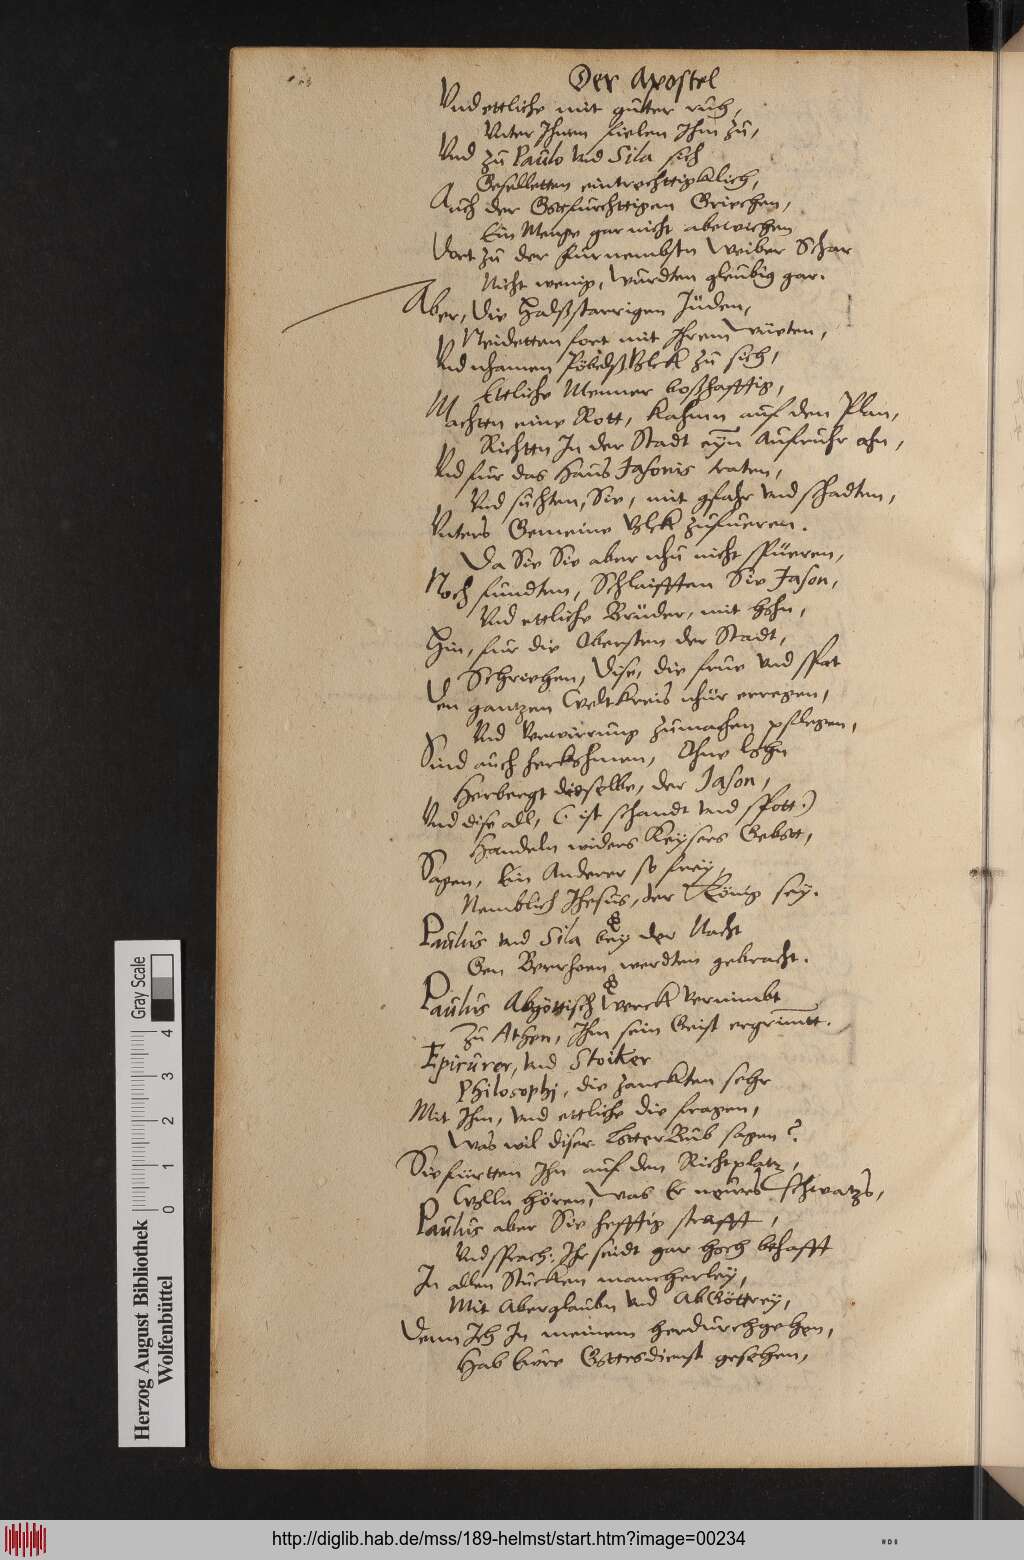 Der Apostel
Vnd ettliche mit gutter ruh,
Vnter Ihnen fielen Ihm zu,
Vnd zu Paulo vnd Sila sich
Geselletten eintrechttigklich,
Auch der Gotsfurchttigen Griechen,
Ein Menge gar nicht abewichen
Dort zu der furnembstn Weiber Schar
Nicht wenig, wurdten gleubig gar.
Aber, die Halßstarrigen Jüden,
Neidetten fort mit Ihrem wüeten,
Vnd nhamen Pöbelß Volck zu sich,
Ettliche Menner boßhafftig,
Machten eine Rott, kahmn auf den Plan,
Richttn In der Stadt eyn Aufruhr ahn,
Vnd fur das Haus Jasonis traten,
Vnd suchten, Sie, mit gfahr vnd schadten,
Vnters Gemeine Volck zufueren.
Da Sie Sie aber nhu nicht spüeren,
Noch fundten, Schleifften Sie Jason,
Vnd ettliche Brüder, mit hohn,
Hin, fur die Obersten der Stadt,
Schriehen, Dise, die frue vnd spat
Den gantzen Weltkreis nhur erregen,
Vnd Verwirrung zumachen pflegen,
Sind auch herkohmen, Ohne lohn
Herbergt dieselbe, der Jason,
Vnd dise all, (: ist schandt vnd spott:)
Handeln widers Keysers Gebott,
Sagen, Ein Anderer so frey,
Nemblich Jhesus, der König sey.
Paulus vnd Sila bey der Nacht
Gen Berrhoen werdten gebracht.
Paulus Abgöttisch werck vernimbt
Zu Athen, Ihm sein Geist ergrimmt.
Epicurer, vnd Stoiker
Philosophj, die zanckten sehr
Mit Ihm, vnd ettliche die fragen,
Was wil diser LotterBub sagen?
Sie fürtten Ihn auf den Richtplatz,
Wolln hören, was Er neues schwatzs,
Paulus aber Sie hefftig strafft,
Vnd sprach: Ihr seidt gar hoch behafft
In allen Stucken mancherley,
Mit Aberglaubn vnd AbGötterey,
Denn Ich In meinem herdurchgehen,
Hab Eure Gottesdienst gesehen,
Herzog August Bibliothek
Wolfenbüttel
Gray Scale
0 1 2 3 4
http://diglib.hab.de/mss/189-helmst/start.htm?image=00234